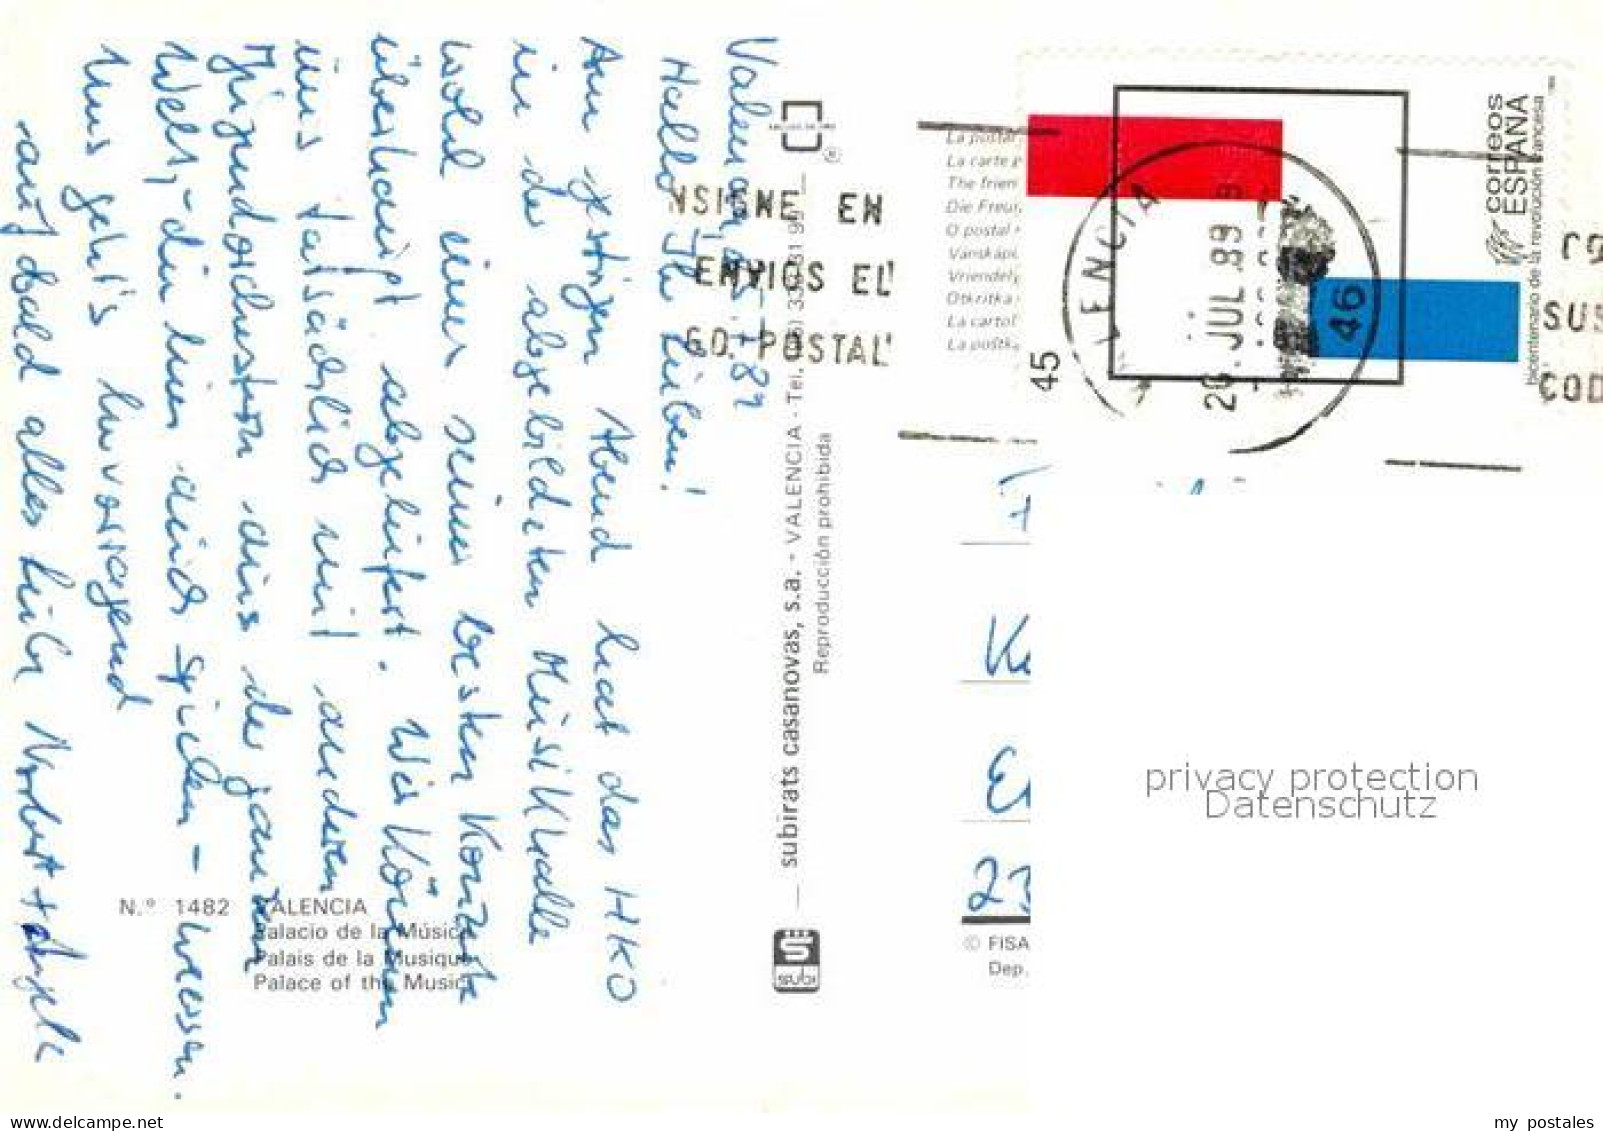 Valencia, 25.7.89
Hallo Ihr Lieben!
Am gestrigen Abend hat das HKO
in der abgebildeten Musikhalle
wohl eines seiner besten Konzerte
überhaupt abgeliefert. Wir können
uns tatsächlich mit anderen
Jugendorchestern aus der ganzen
Welt, - die hier auch spielen - messen.
Uns geht's hervorragend
auf bald alles Liebe Norbert +
N.° 1482 VALENCIA
Palacio de la Música
Palais de la Musique
Palace of the Music
subirats casanovas, s.a. - VALENCIA - Tel.
Reproducción prohibida
SUBI
NSIGNE EN
ENVIOS EL
GO POSTAL
La postal
La carte p
The frien
Die Freu
O postal
Vänskäpi
Vriendel
Otkritka
La cartol
La poštk
45
VALENCIA
26.JUL.89
46
correos
ESPAÑA
bicentenario de la revolución francesa
CO
SUS
COD
K
23
© FISA
Dep.
privacy protection
Datenschutz
www.delcampe.net
my_postales